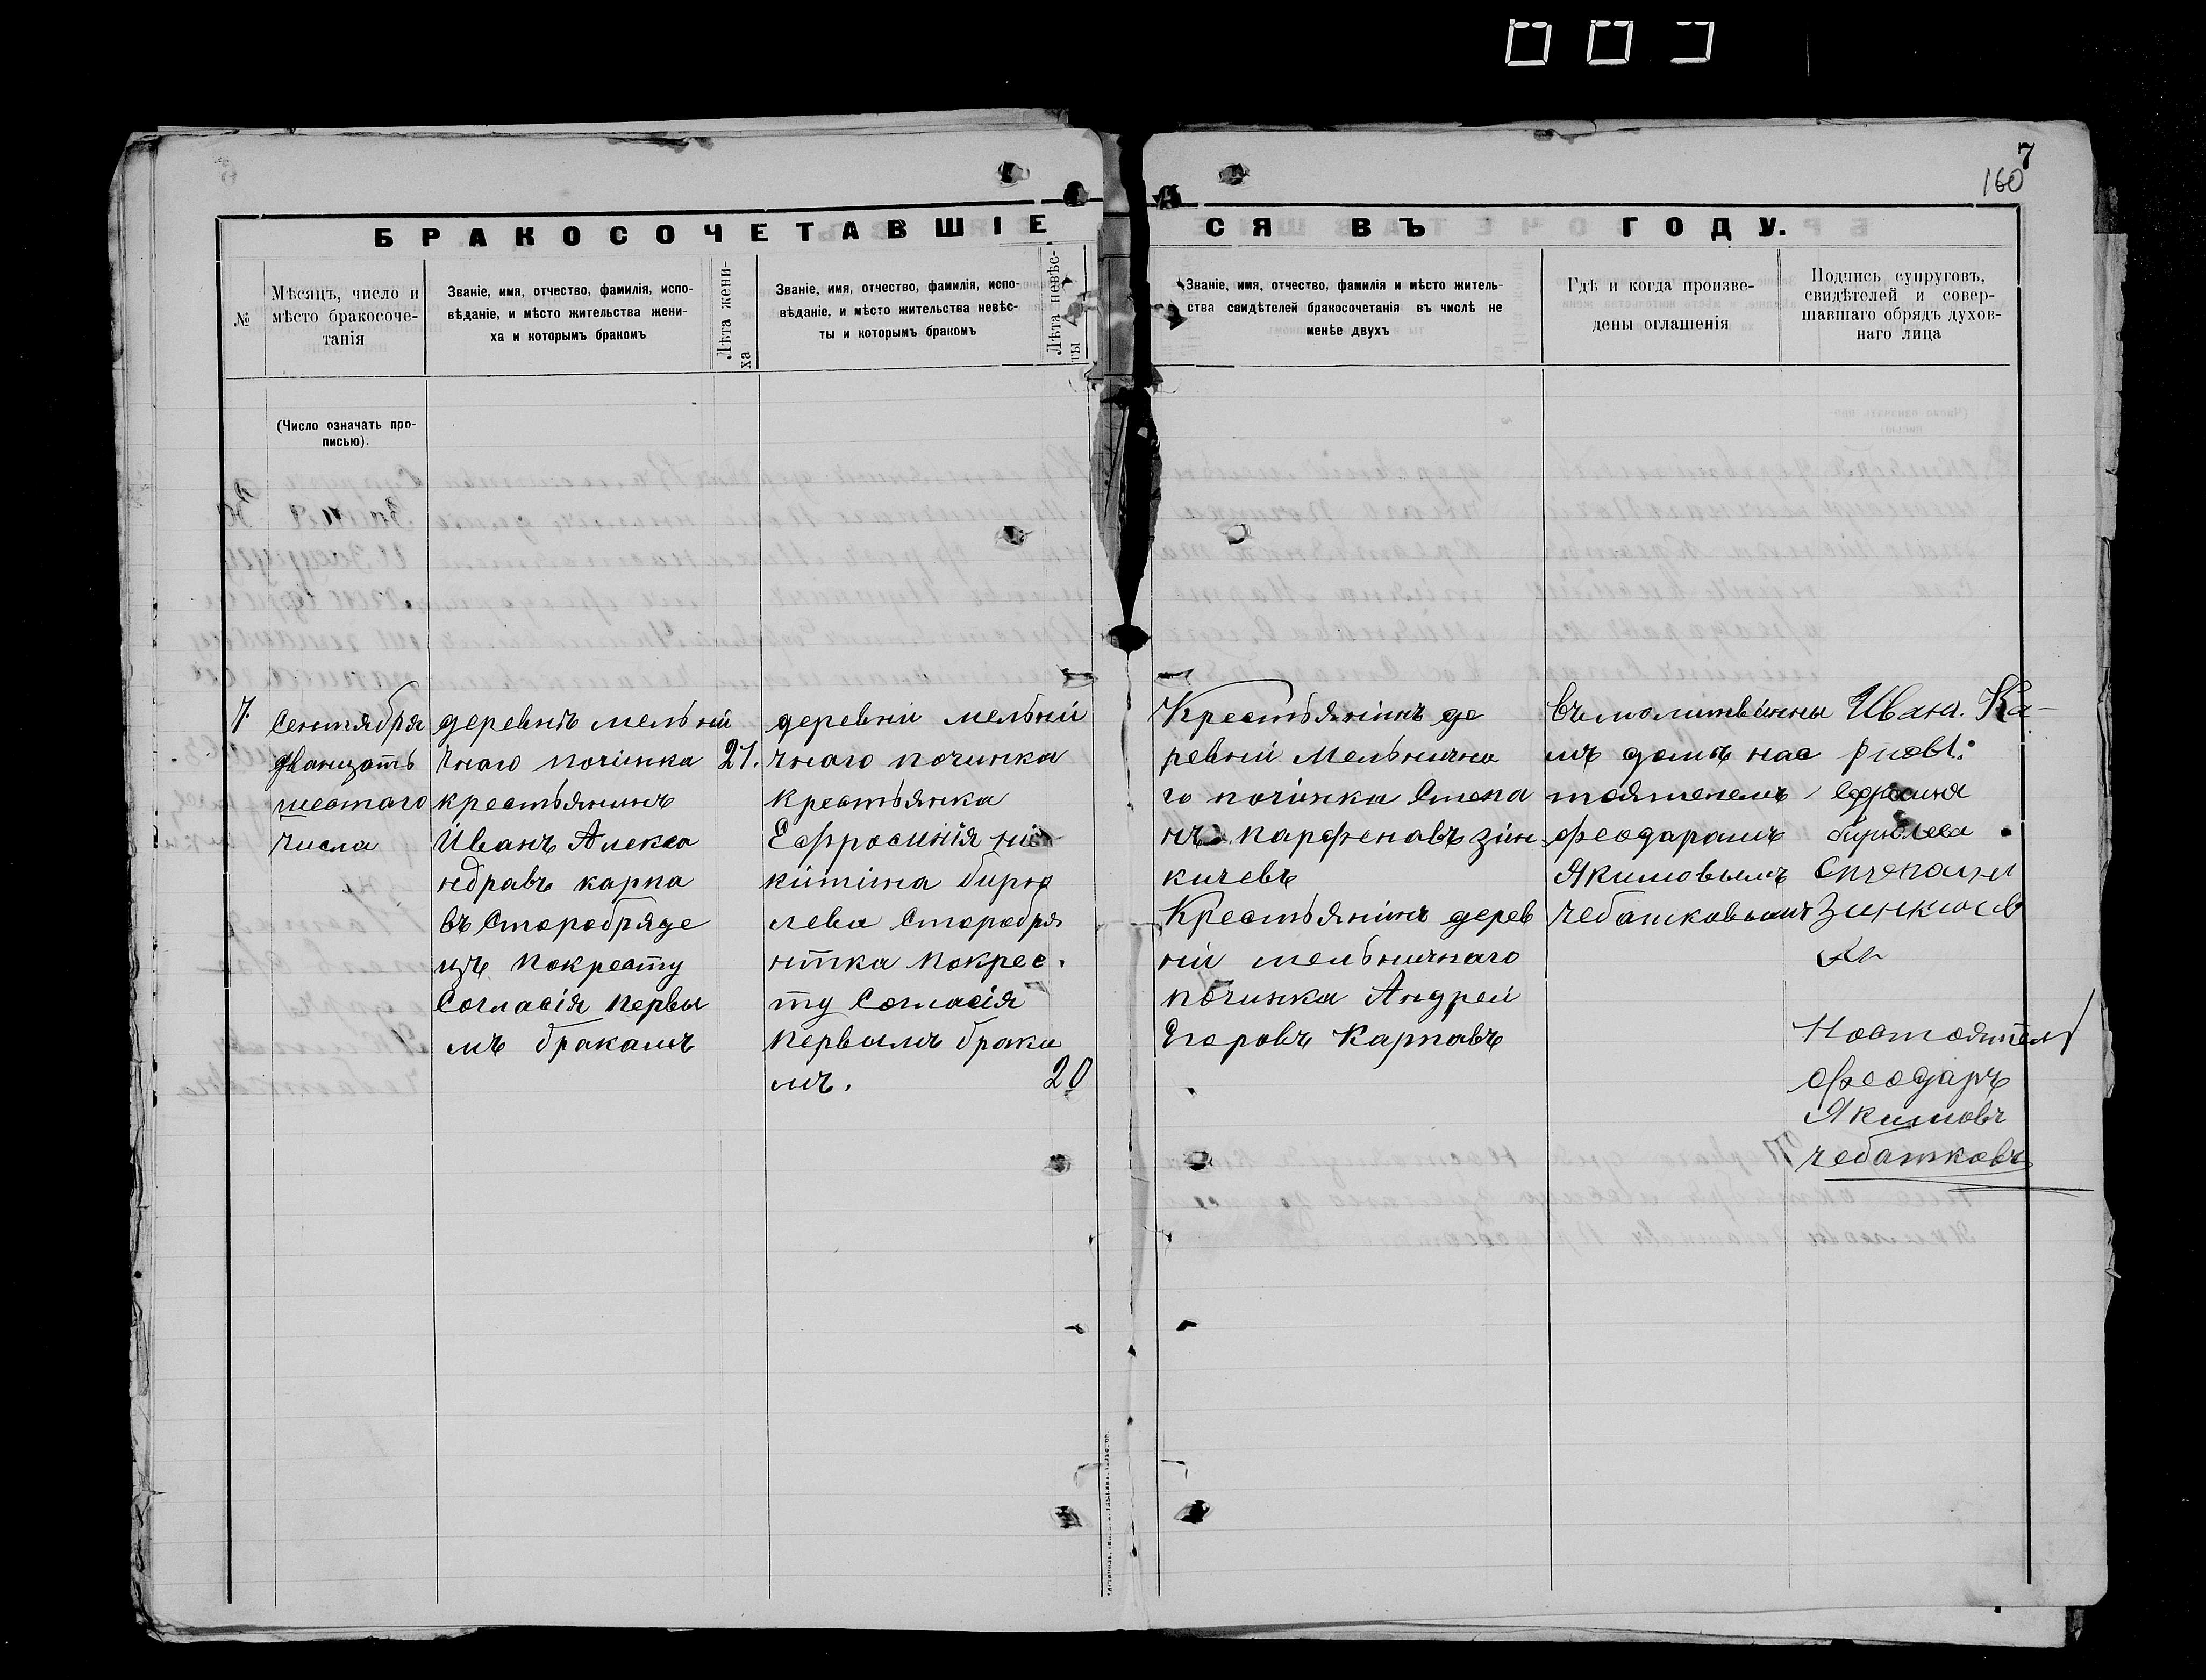 7
160
БРАКОСОЧЕТАВШІЕ
СЯ ВЪ ГОДУ.
№
Мѣсяцъ, число и
мѣсто бракосоче-
танія
Званіе, имя, отчество, фамилія, испо-
вѣданіе, и мѣсто жительства жени-
ха и которымъ бракомъ
Лѣта жени-
ха
Званіе, имя, отчество, фамилія, испо-
вѣданіе, и мѣсто жительства невѣс-
ты и которымъ бракомъ
Лѣта невѣс-
ты
Званіе, имя, отчество, фамилія и мѣсто житель-
ства свидѣтелей бракосочетанія въ числѣ не
менѣе двухъ
Гдѣ и когда произве-
дены оглашенія
Подпись супруговъ,
свидѣтелей и совер-
шавшаго обрядъ духов-
наго лица
(Число означать про-
писью).
7.
Сентября
дванцать
шестаго
числа
деревнѣ мельній
чнаго почінка
крестьянинъ
Иванъ Алекса
ндравъ карпа
въ Старобряде
цъ покресту
Согласія первы
мъ бракамъ
21.
деревніи мельній
чнаго починка
крестьянка
Ефросинія ни
китіна бирю
лева Старобря
нтка покрес.
ту Согласія
первымъ брака
мъ.
20
Крестьянінъ де
ревніи Мельнична
го почінка Степа
нъ парфенавъ зин
кичевъ
Крестьянінъ дерев
ніи мельничнаго
починка Андреи
Егоровъ Карпавъ
въ молитвѣнны
мъ домѣ нас
тоятелемъ
феодарамъ
Якимовымъ
чебатковымъ
Иванъ. Ка-
рповъ.
Ефросиня
бирюлева
Степанъ
Настоятель
феодаръ
Якимовъ
чебатковъ